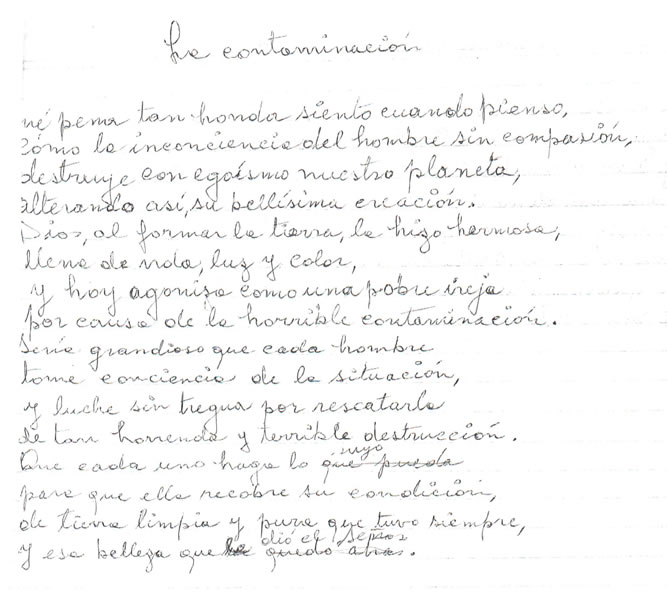 La contaminación
ué pena tan honda siento cuando pienso,
cómo la inconciencia del hombre sin compasión,
destruye con egoísmo nuestro planeta,
alterando así, su bellísima creación.
Dios, al formar la tierra, la hizo hermosa,
llena de vida, luz y color,
y hoy agoniza como una pobre vieja
por causa de la horrible contaminación.
Sería grandioso que cada hombre
tome conciencia de la situación,
y luche sin tregua por rescatarla
de tan horrenda y terrible destrucción.
Que cada uno haga lo que pueda suyo
para que ella recobre su condición,
de tierra limpia y pura que tuvo siempre,
y esa belleza que le dió el Señor quedo atras.